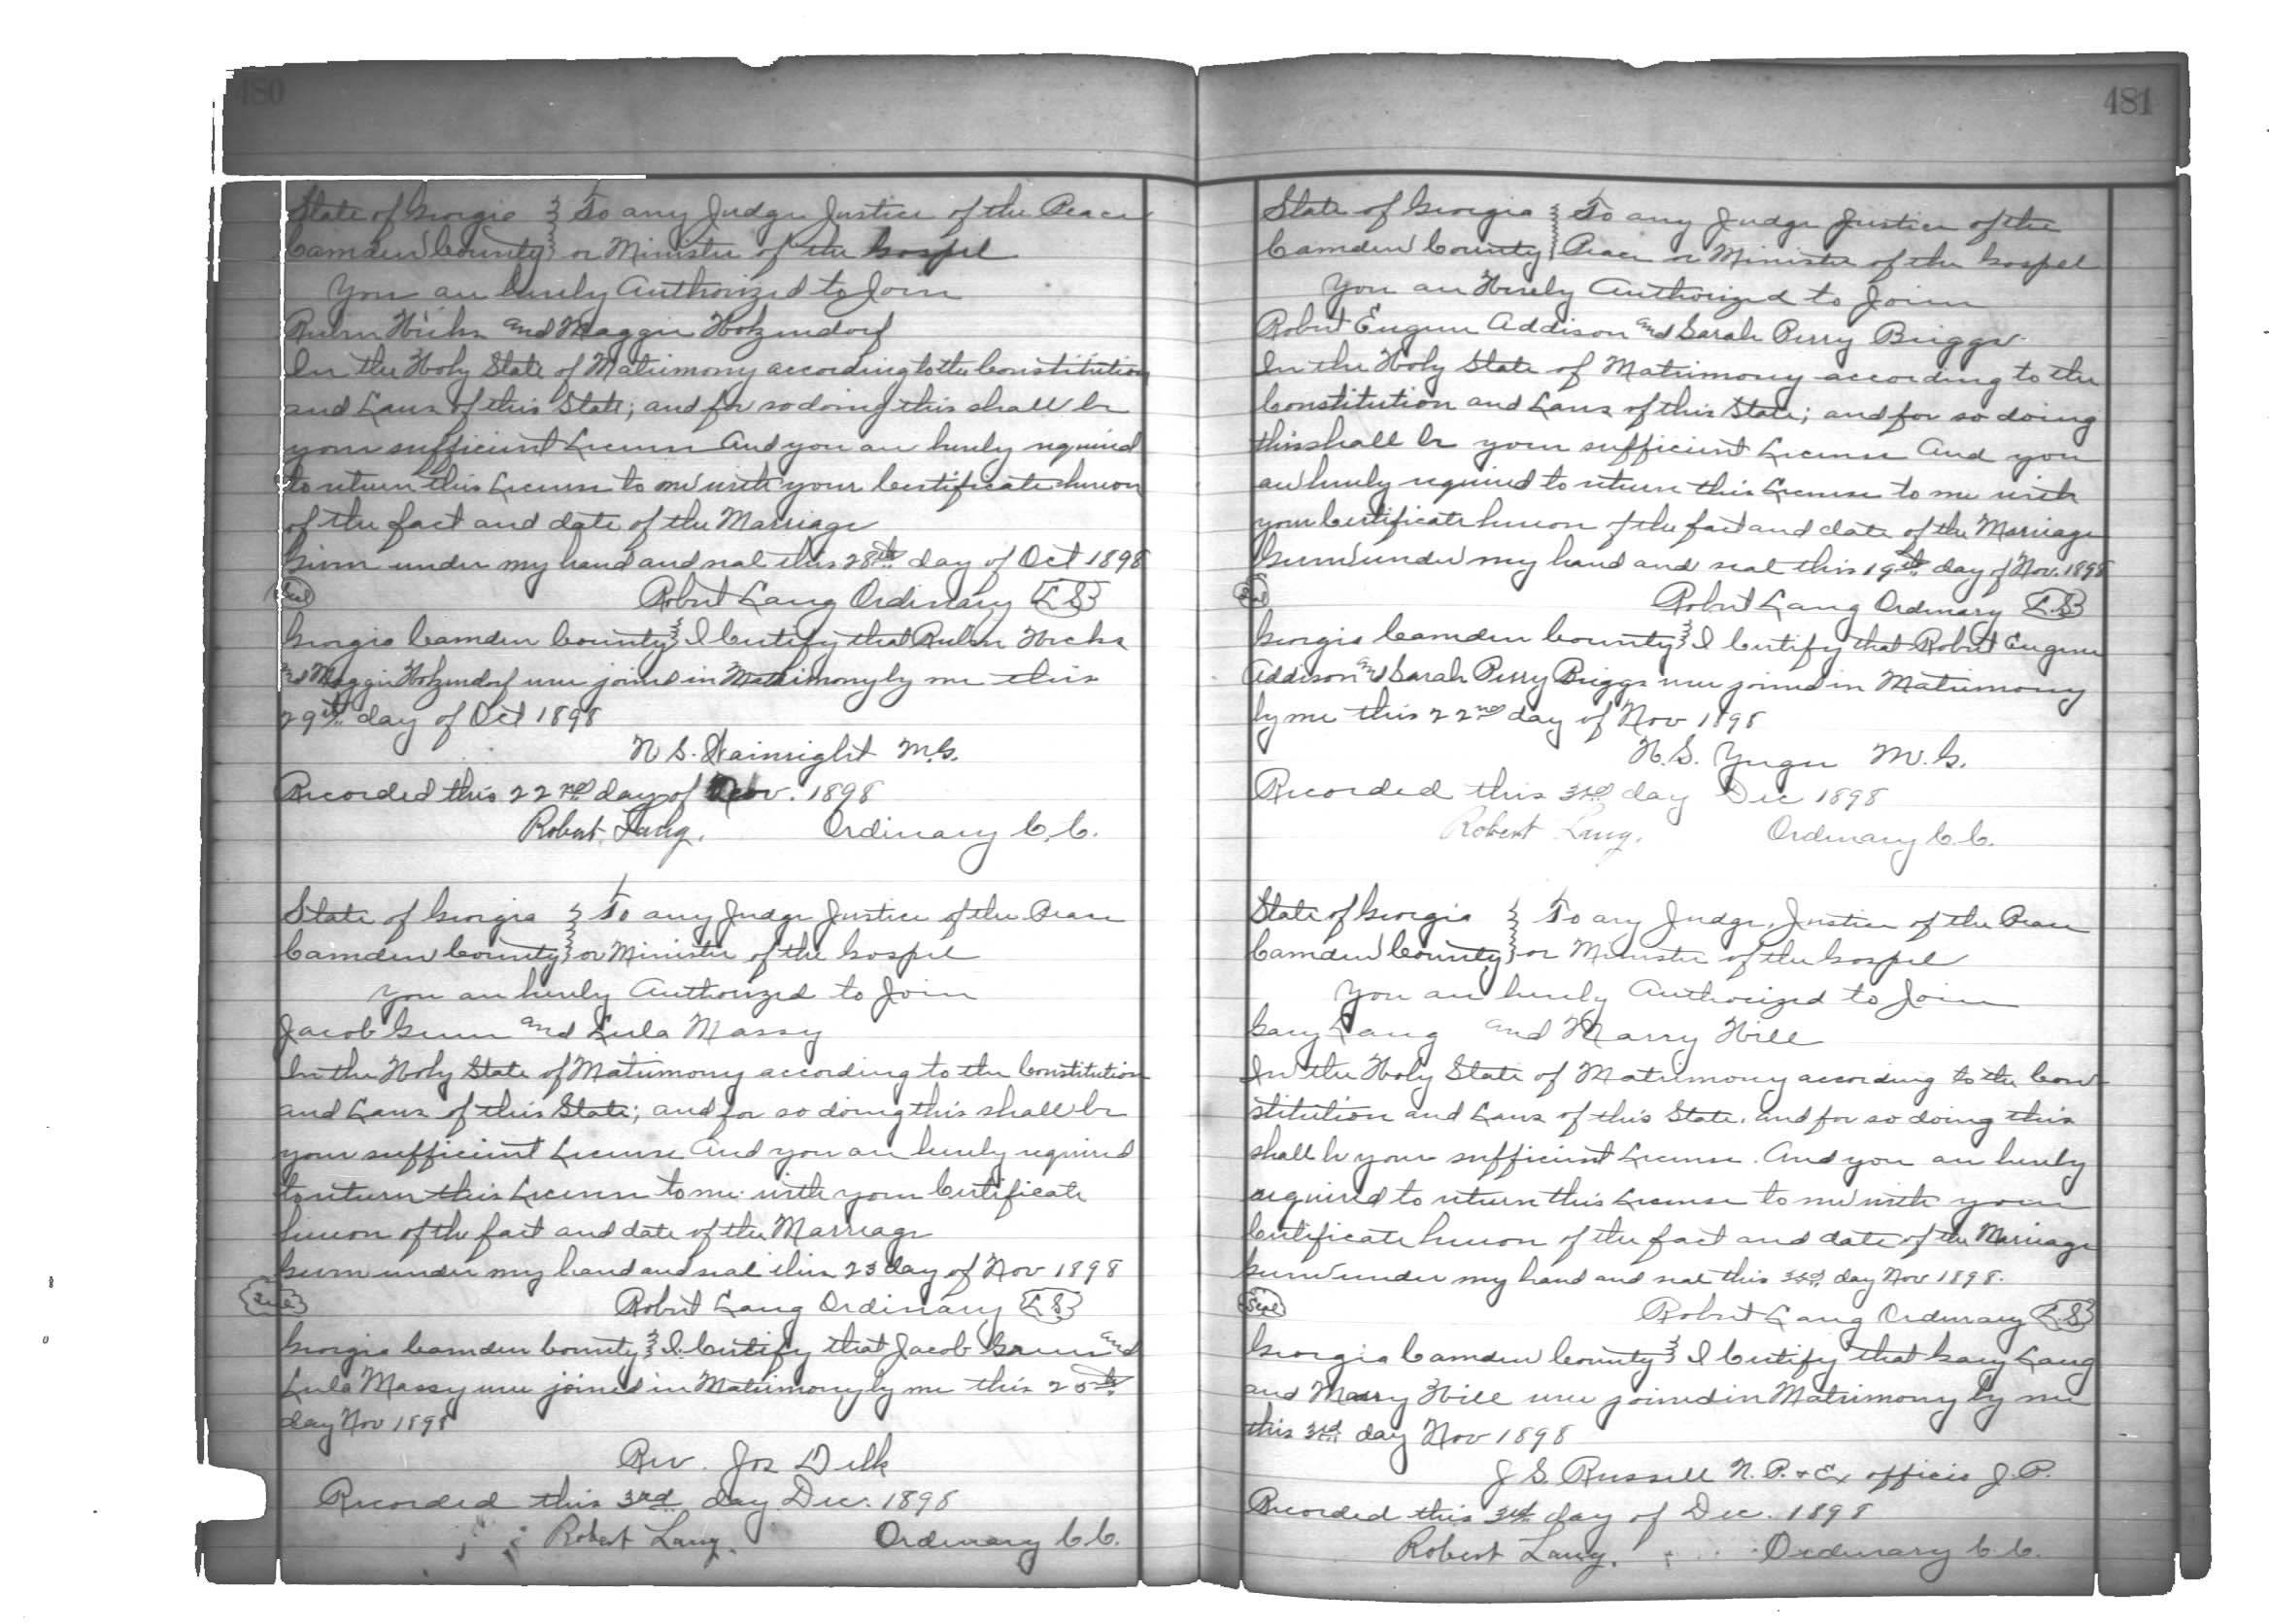 480
State of Georgia } To any Judge Justice of the Peace
Camden County } or Minister of the Gospel
You are hereby Authorized to Join
Ruben Hicks and Maggie Hotzendorf
In the Holy State of Matrimony according to the Constitution
and Laws of this State; and for so doing this shall be
your sufficient License And you are hereby required
to return this License to me with your Certificate hereon
of the fact and date of the Marriage
Given under my hand and seal this 28th day of Oct 1898
Seal
Robert Lang Ordinary {L.S}
Georgia Camden County } I Certify that Ruben Hicks
and Maggie Hotzendorf were joined in Matrimony by me this
29th day of Oct 1898
N S. Wainright M.G.
Recorded this 22nd day of Nov. 1898
Robert Lang. Ordinary C.C.
State of Georgia } To any Judge Justice of the Peace
Camden County } or Minister of the Gospel
You are hereby Authorized to Join
Jacob and Lula Massy
In the Holy State of Matrimony according to the Constitution
and Laws of this State; and for so doing this shall be
your sufficient License And you are hereby required
to return this License to me with your Certificate
hereon of the fact and date of the Marriage
Given under my hand and seal this 23 day of Nov 1898
Seal
Robert Lang Ordinary {L.S}
Georgia Camden County } I Certify that Jacob and
Lula Massy were joined in Matrimony by me this
day Nov 1898
Rev. Jos Dilk
Recorded this 3rd day Dec. 1898
Robert Lang. Ordinary C.C.
481
State of Georgia } To any Judge Justice of the
Camden County } Peace or Minister of the Gospel
You are Hereby Authorized to Join
Robert Eugene Addison and Sarah Perry Briggs
In the Holy State of Matrimony according to the
Constitution and Laws of this State; and for so doing
this shall be your sufficient License And you
are hereby required to return this License to me with
your Certificate hereon of the fact and date of the Marriage
Given under my hand and seal this 19th day of Nov. 1898
Seal
Robert Lang Ordinary {L.S}
Georgia Camden County } I Certify that Robert Eugene
Addison and Sarah Perry Briggs were joined in Matrimony
by me this 22nd day of Nov 1898
M.G.
Recorded this 3rd day Dec 1898
Robert Lang. Ordinary C.C.
State of Georgia } To any Judge, Justice of the Peace
Camden County } or Minister of the Gospel
You are hereby Authorized to Join
Gary Lang and Marry Hill
In the Holy State of Matrimony according to the Con-
stitution and Laws of this State. and for so doing this
shall be your sufficient License. And you are hereby
required to return this License to me with your
Certificate hereon of the fact and date of the Marriage
Given under my hand and seal this 3rd day Nov 1898.
Seal
Robert Lang Ordinary {L.S}
Georgia Camden County } I Certify that Gary Lang
and Marry Hill were joined in Matrimony by me
this 3rd day Nov 1898
J S. Russell N.P. & Ex officio J.P.
Recorded this 3rd day of Dec. 1898
Robert Lang. Ordinary C.C.